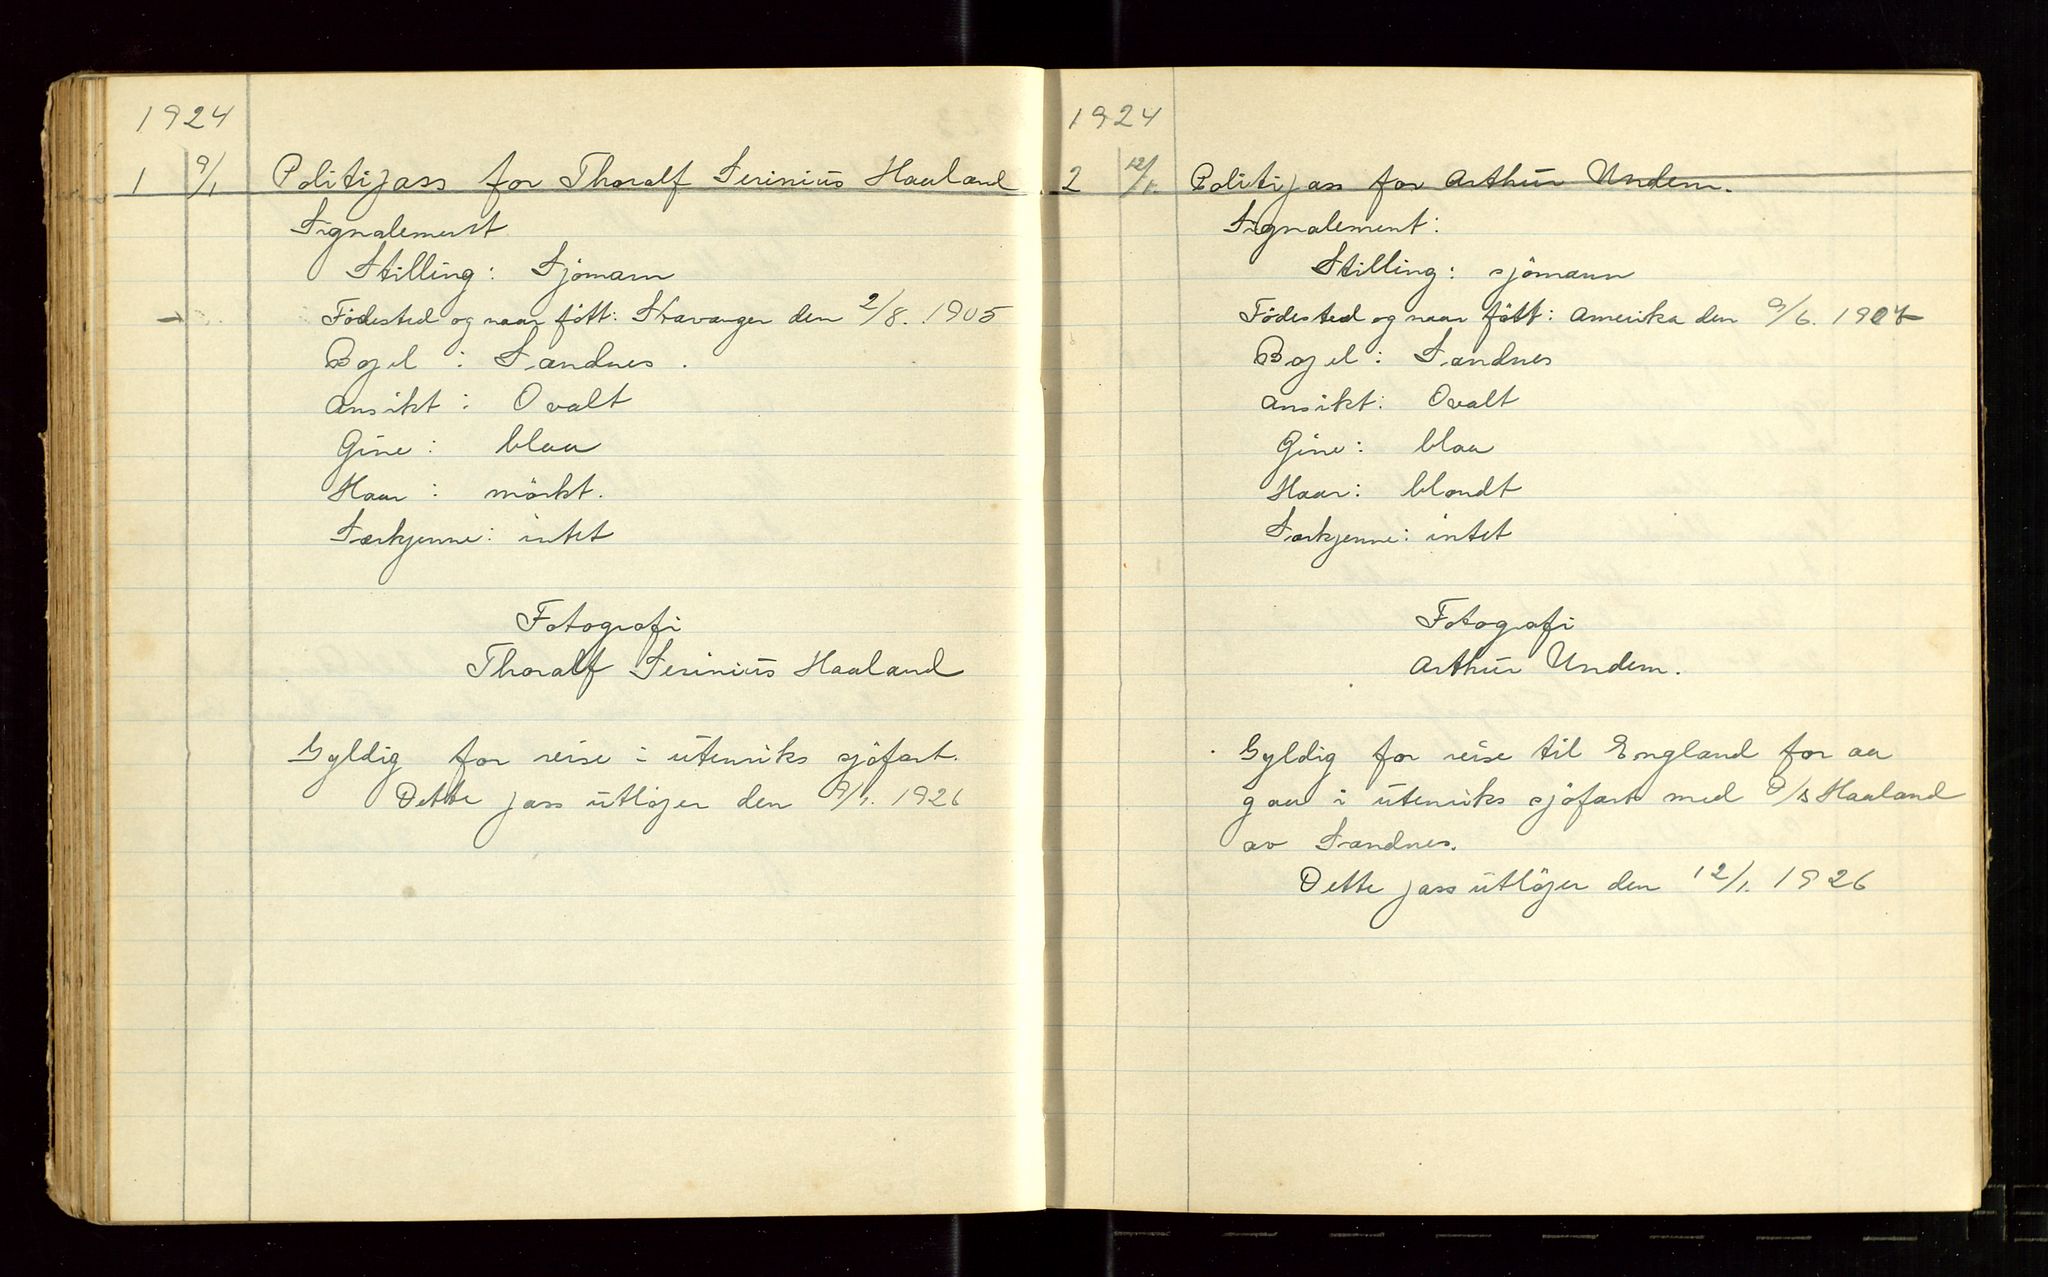 1924
1 9/1 Politipass for Thoralf Serinius Haaland
Signalement
Stilling: Sjömann
Födested og naar fött: Stavanger den 2/8. 1905
Bopel: Sandnes.
Ansikt: Ovalt
Öine: blaa
Haar: mörkt.
Særkjenne: intet
Fotografi
Thoralf Serinius Haaland
Gyldig for reise i utenriks sjöfart.
Dette pass utlöper den 9/1. 1926
1924
2 12/1. Politipass for Arthur Undem.
Signalement:
Stilling: sjömann
Födested og naar fött: Amerika den 9/6.
Bopel: Sandnes
Ansikt: Ovalt
Öine: blaa
Haar: blondt
Særkjenne: intet
Fotografi
Arthur Undem.
Gyldig for reise til England for aa
gaa i utenriks sjöfart med D/s Haaland
av Sandnes.
Dette pass utlöper den 12/1. 1926